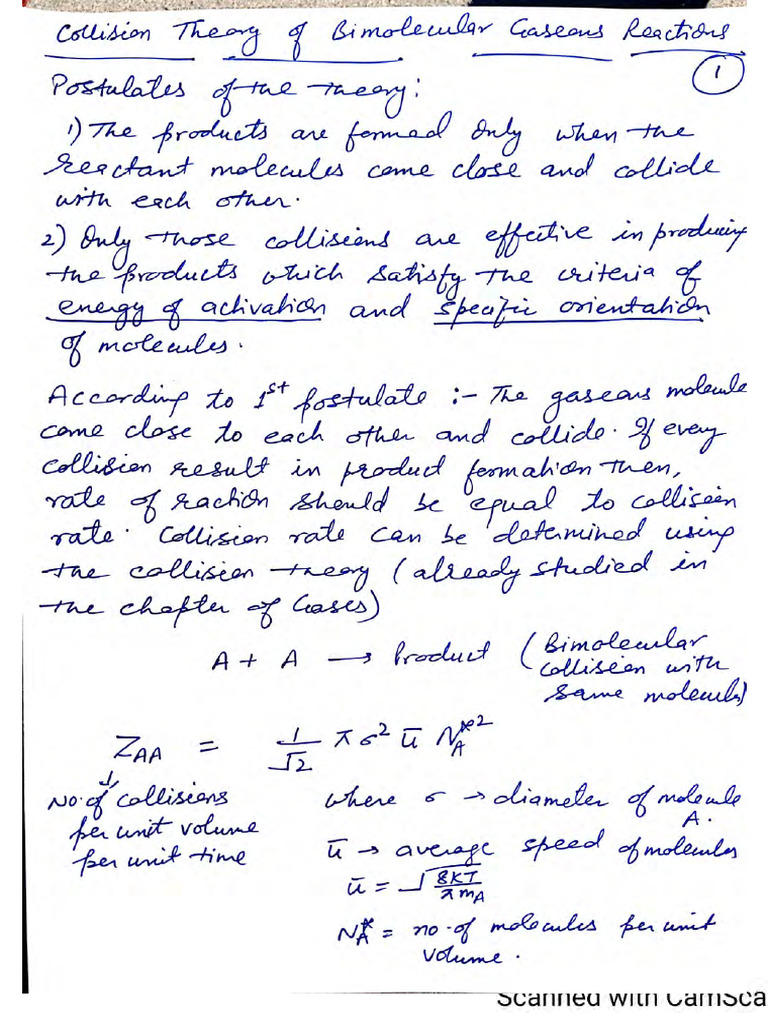 Collision Theory of Bimolecular Gaseous Reactions
1
Postulates of the theory:
1) The products are formed only when the
reactant molecules come close and collide
with each other.
2) Only those collisions are effective in producing
the products which satisfy the criteria of
energy of activation and specific orientation
of molecules.
According to 1st postulate :- The gaseous molecule
come close to each other and collide. If every
collision result in product formation then,
rate of raction should be equal to collision
rate. Collision rate can be determined using
the collision theory (already studied in
the chapter of Gases)
A + A → Product (Bimolecular
collision with
same molecules)
Z_AA = 1/√2 π σ² ū N_A*²
↓
No. of collisions
per unit volume
per unit time
where σ → diameter of molecule
A.
ū → average speed of molecules
ū = √(8KT/πm_A)
N_A* = no. of molecules per unit
volume.
Scanned with CamSca